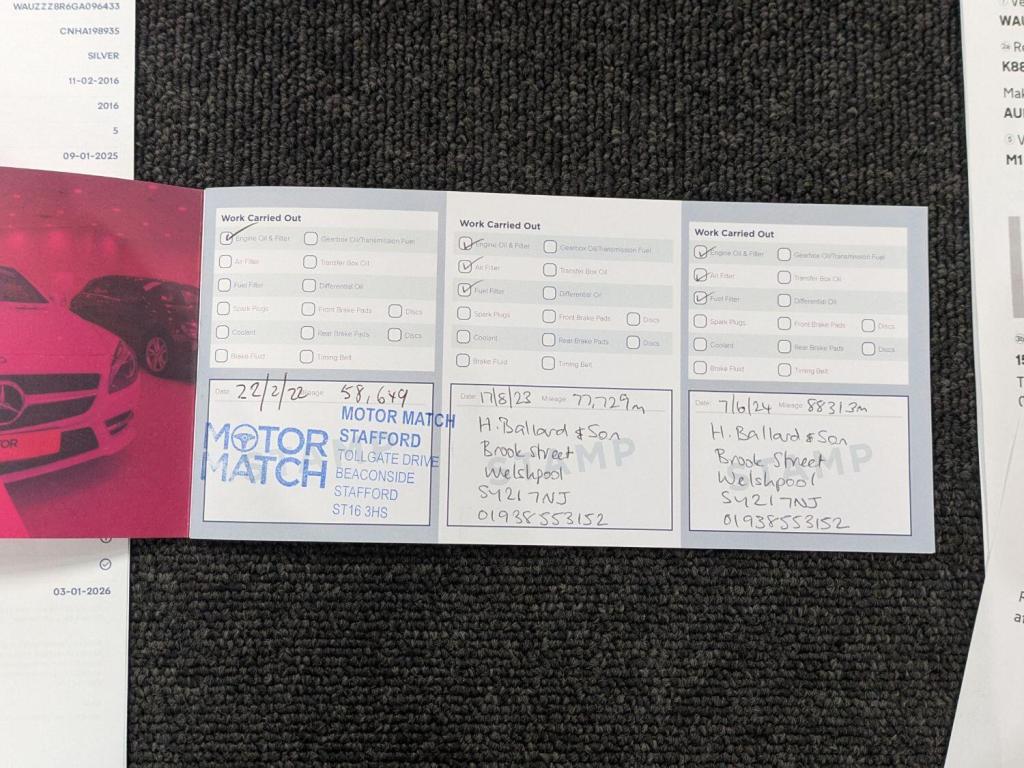 WAUZZZ8R6GA096433
CNHA198935
SILVER
11-02-2016
2016
5
09-01-2025
03-01-2026
Work Carried Out
Engine Oil & Filter
Gearbox Oil/Transmission Fuel
Air Filter
Transfer Box Oil
Fuel Filter
Differential Oil
Spark Plugs
Front Brake Pads
Discs
Coolant
Rear Brake Pads
Discs
Brake Fluid
Timing Belt
Date: 22/2/22 58,649
MOTOR MATCH
MOTOR MATCH
STAFFORD
TOLLGATE DRIVE
BEACONSIDE
STAFFORD
ST16 3HS
Work Carried Out
Engine Oil & Filter
Gearbox Oil/Transmission Fuel
Air Filter
Transfer Box Oil
Fuel Filter
Differential Oil
Spark Plugs
Front Brake Pads
Discs
Coolant
Rear Brake Pads
Discs
Brake Fluid
Timing Belt
Date: 17/8/23 Mileage: 77,729m
STAMP
H. Ballard & Son
Brook Street
Welshpool
SY21 7NJ
01938 553152
Work Carried Out
Engine Oil & Filter
Gearbox Oil/Transmission Fuel
Air Filter
Transfer Box Oil
Fuel Filter
Differential Oil
Spark Plugs
Front Brake Pads
Discs
Coolant
Rear Brake Pads
Discs
Brake Fluid
Timing Belt
Date: 7/6/24 Mileage: 88313m
STAMP
H. Ballard & Son
Brook Street
Welshpool
SY21 7NJ
01938553152
WAU
K88
Mak
AU
M1